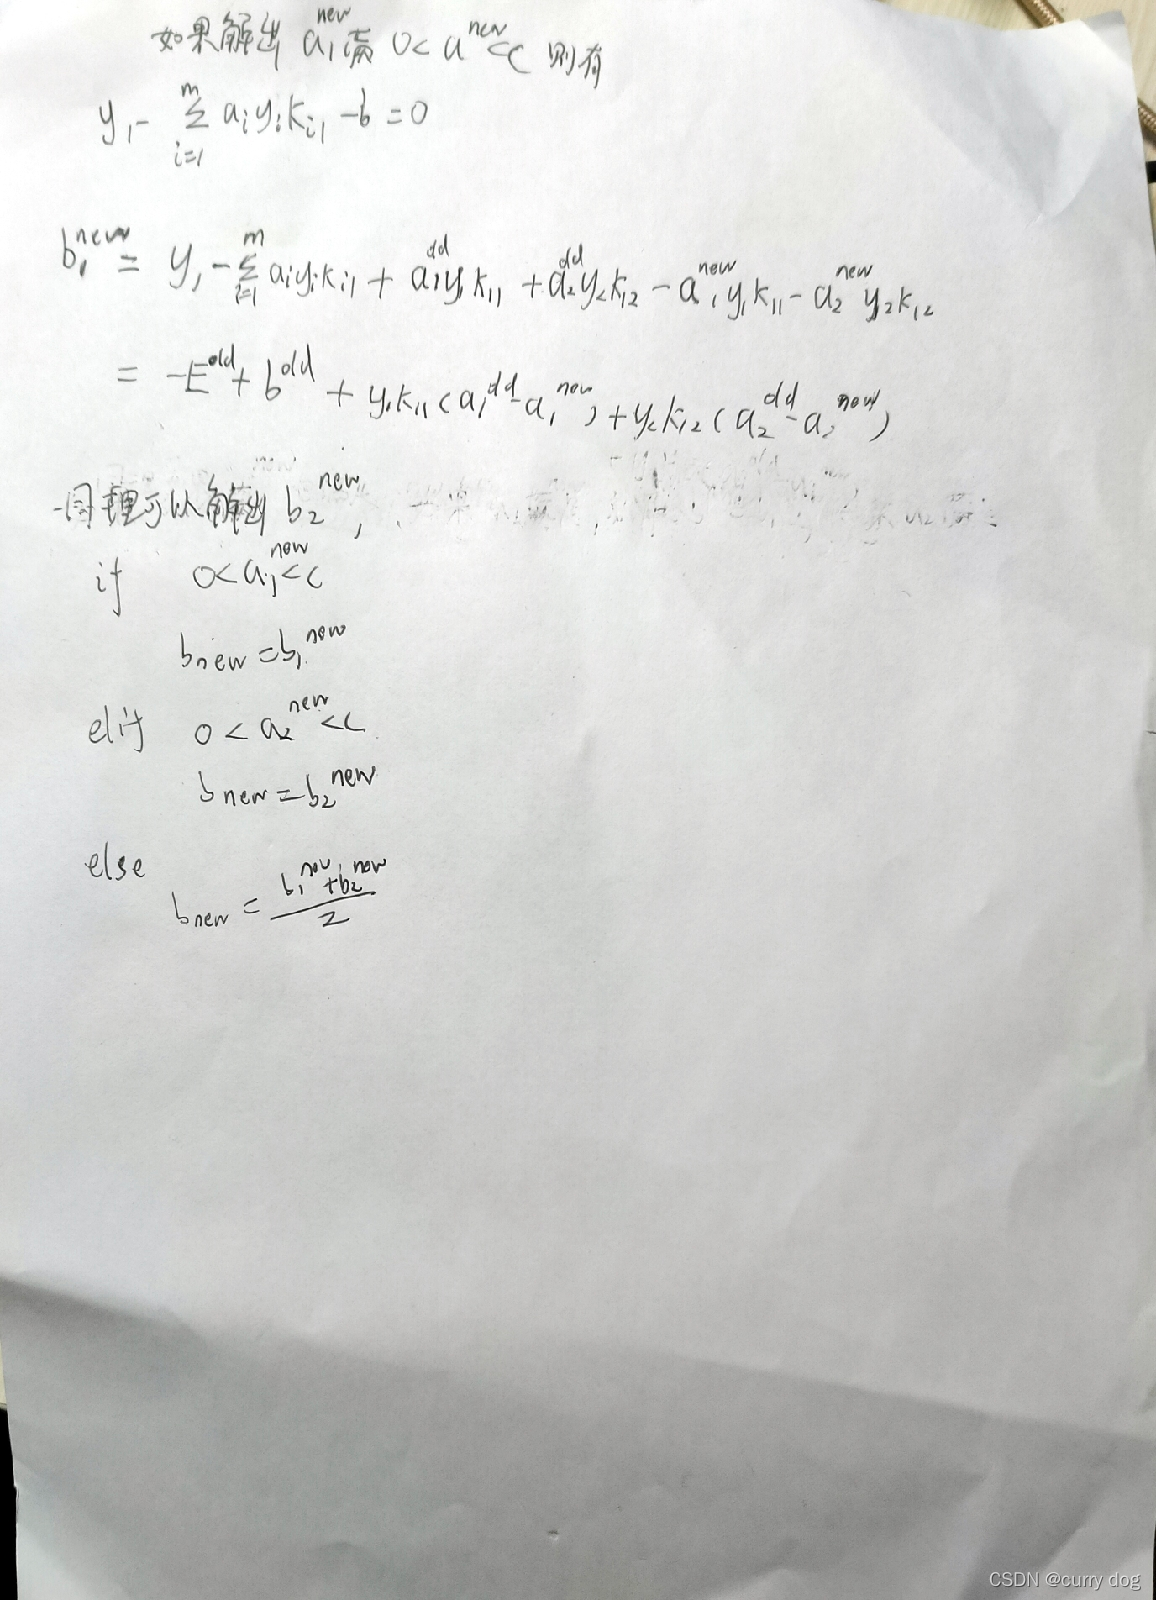 如果解出 a₁ⁿᵉʷ 满 0<aⁿᵉʷ<C 则有
y₁ - ∑ᵢ₌₁ᵐ aᵢyᵢkᵢ₁ - b = 0
b₁ⁿᵉʷ = y₁ - ∑ᵢ₌₁ᵐ aᵢyᵢkᵢ₁ + a₁ᵒˡᵈy₁k₁₁ + a₂ᵒˡᵈy₂k₁₂ - a₁ⁿᵉʷy₁k₁₁ - a₂ⁿᵉʷy₂k₁₂
= -Eᵒˡᵈ + bᵒˡᵈ + y₁k₁₁(a₁ᵒˡᵈ-a₁ⁿᵉʷ) + y₂k₁₂(a₂ᵒˡᵈ-a₂ⁿᵉʷ)
同理可以解出 b₂ⁿᵉʷ,
if 0<a₁ⁿᵉʷ<C
bnew = b₁ⁿᵉʷ
elif 0<a₂ⁿᵉʷ<C
bnew = b₂ⁿᵉʷ
else
bnew = (b₁ⁿᵉʷ+b₂ⁿᵉʷ)/2
CSDN @curry dog